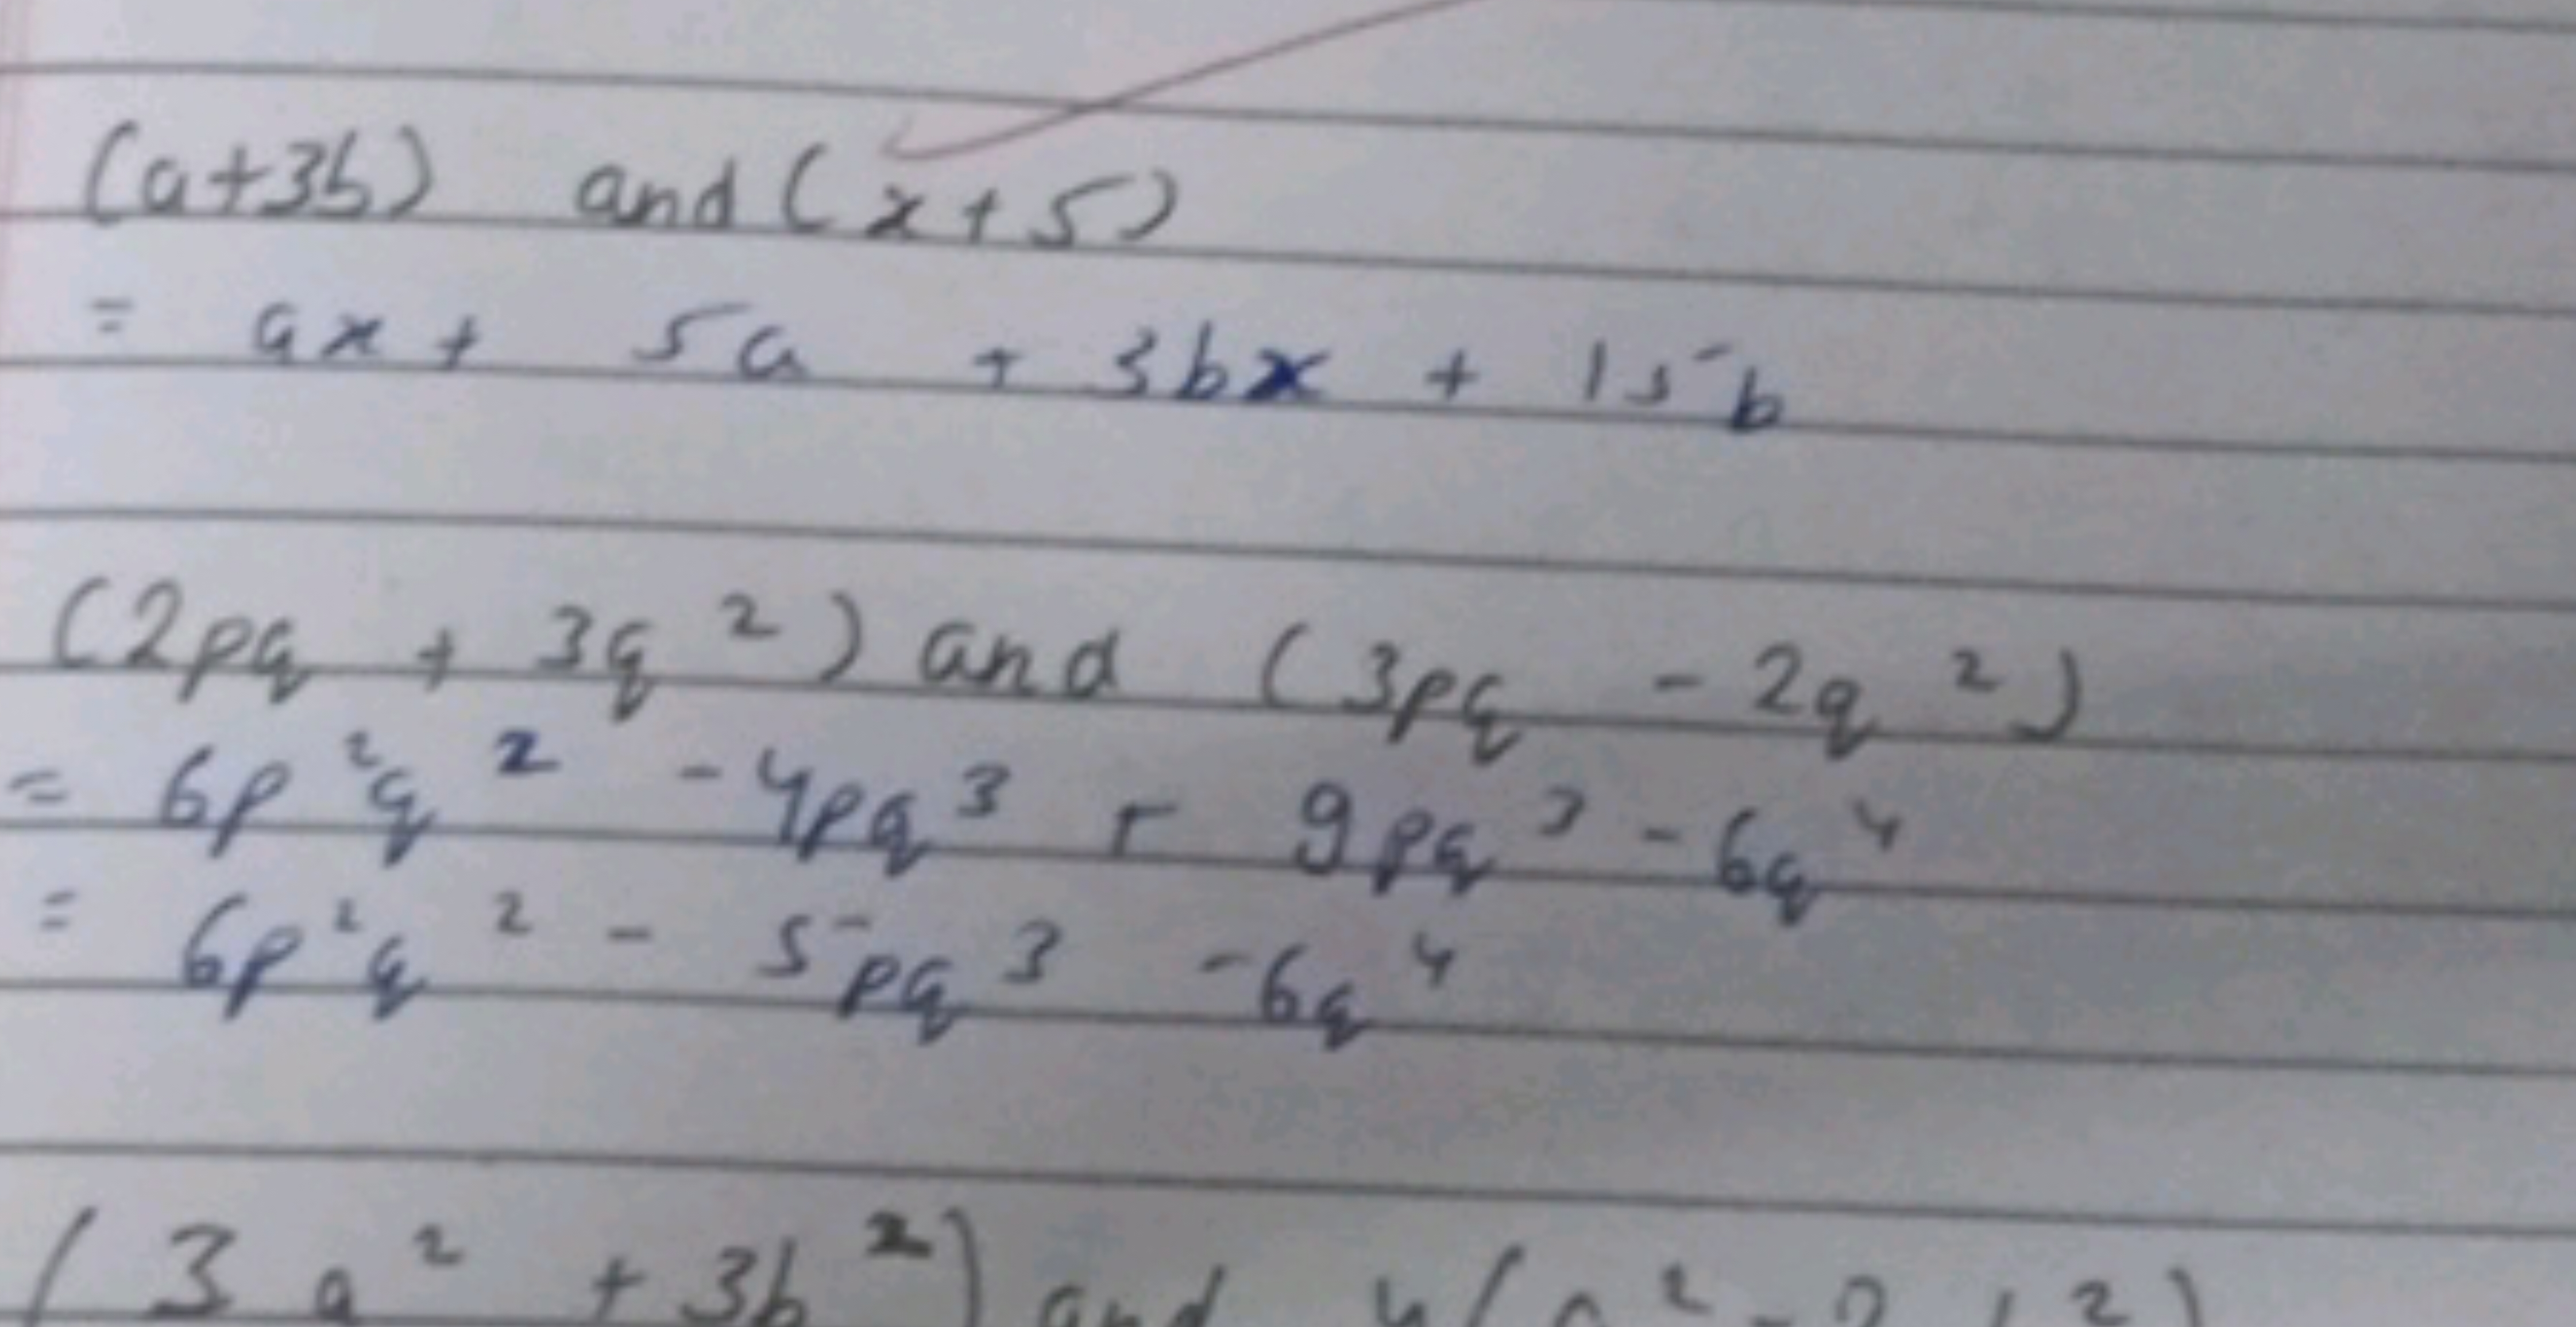 (a+3b) and (x+5)
= ax + 5a + 3bx + 15b
(2pq + 3q²) and (3pq - 2q²)
= 6p²q² - 4pq³ + 9pq³ - 6q⁴
= 6p²q² - 5pq³ - 6q⁴
(3a² + 3b²) and 4(a² -